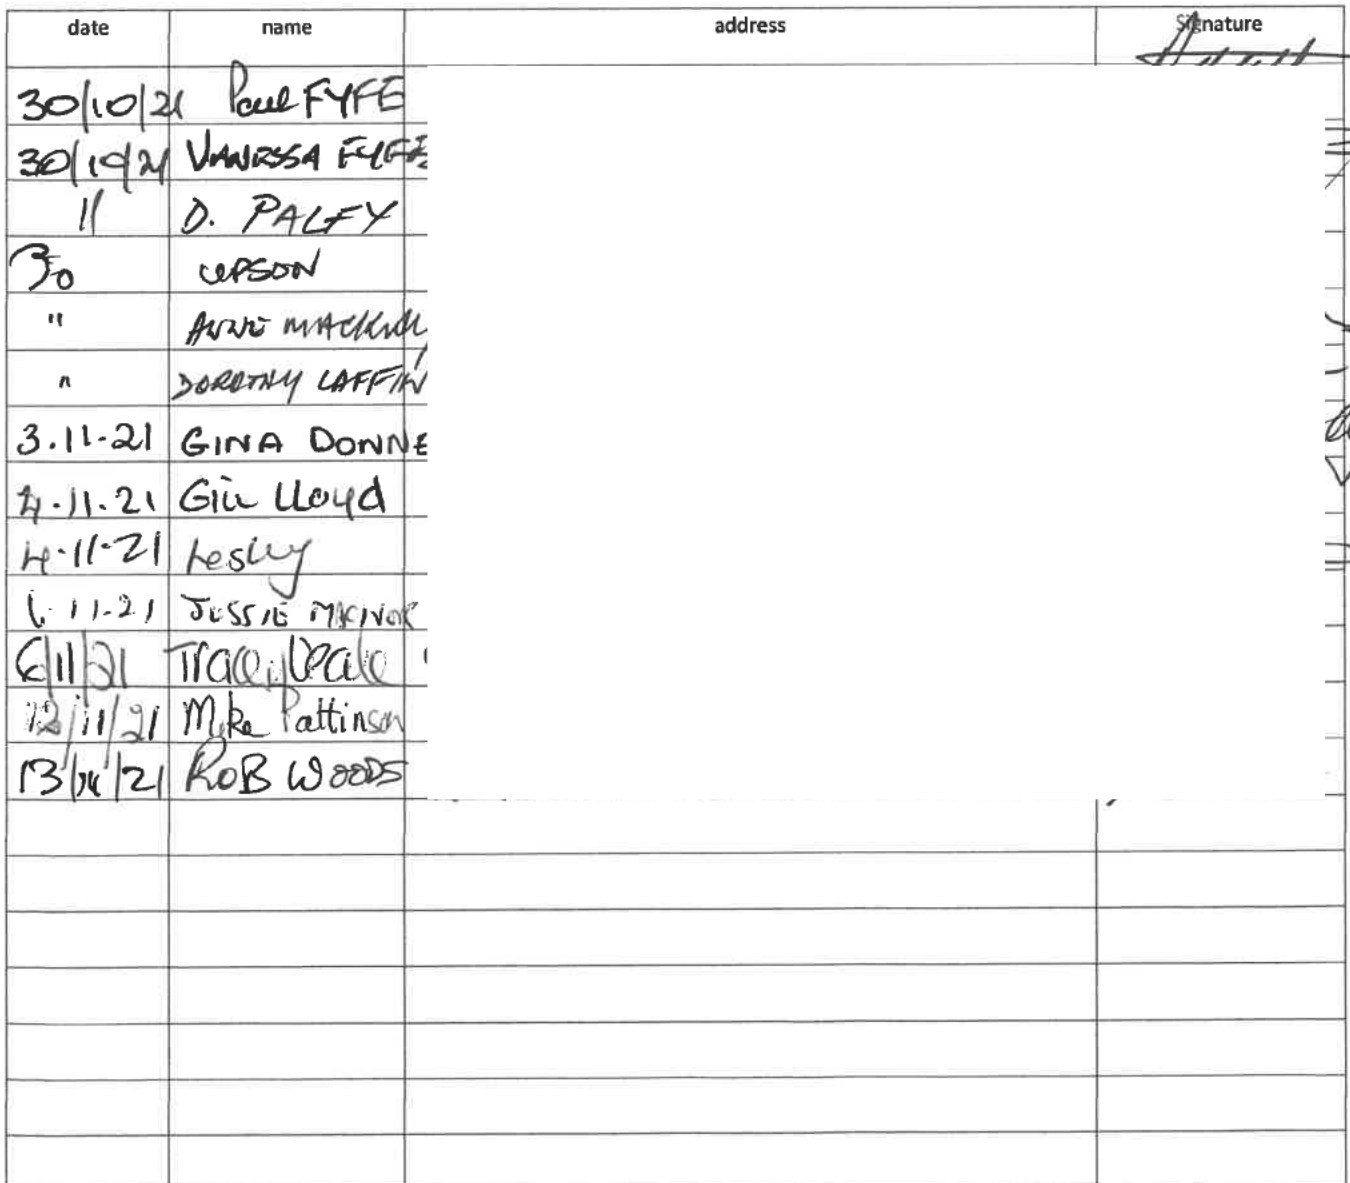 date name address Signature
30/10/21 Paul FYFE
30/10/21 VANESSA FYFE
11 D. PALFY
30 UPSON
" ANNE
" DOROTHY LAFFIN
3.11-21 GINA DONNE
4.11.21 Gill Lloyd
4.11-21 Lesley
11-21 JESSIE
6/11/21 Tracey
12/11/21 Mike Pattinson
13/ /21 ROB WOODS